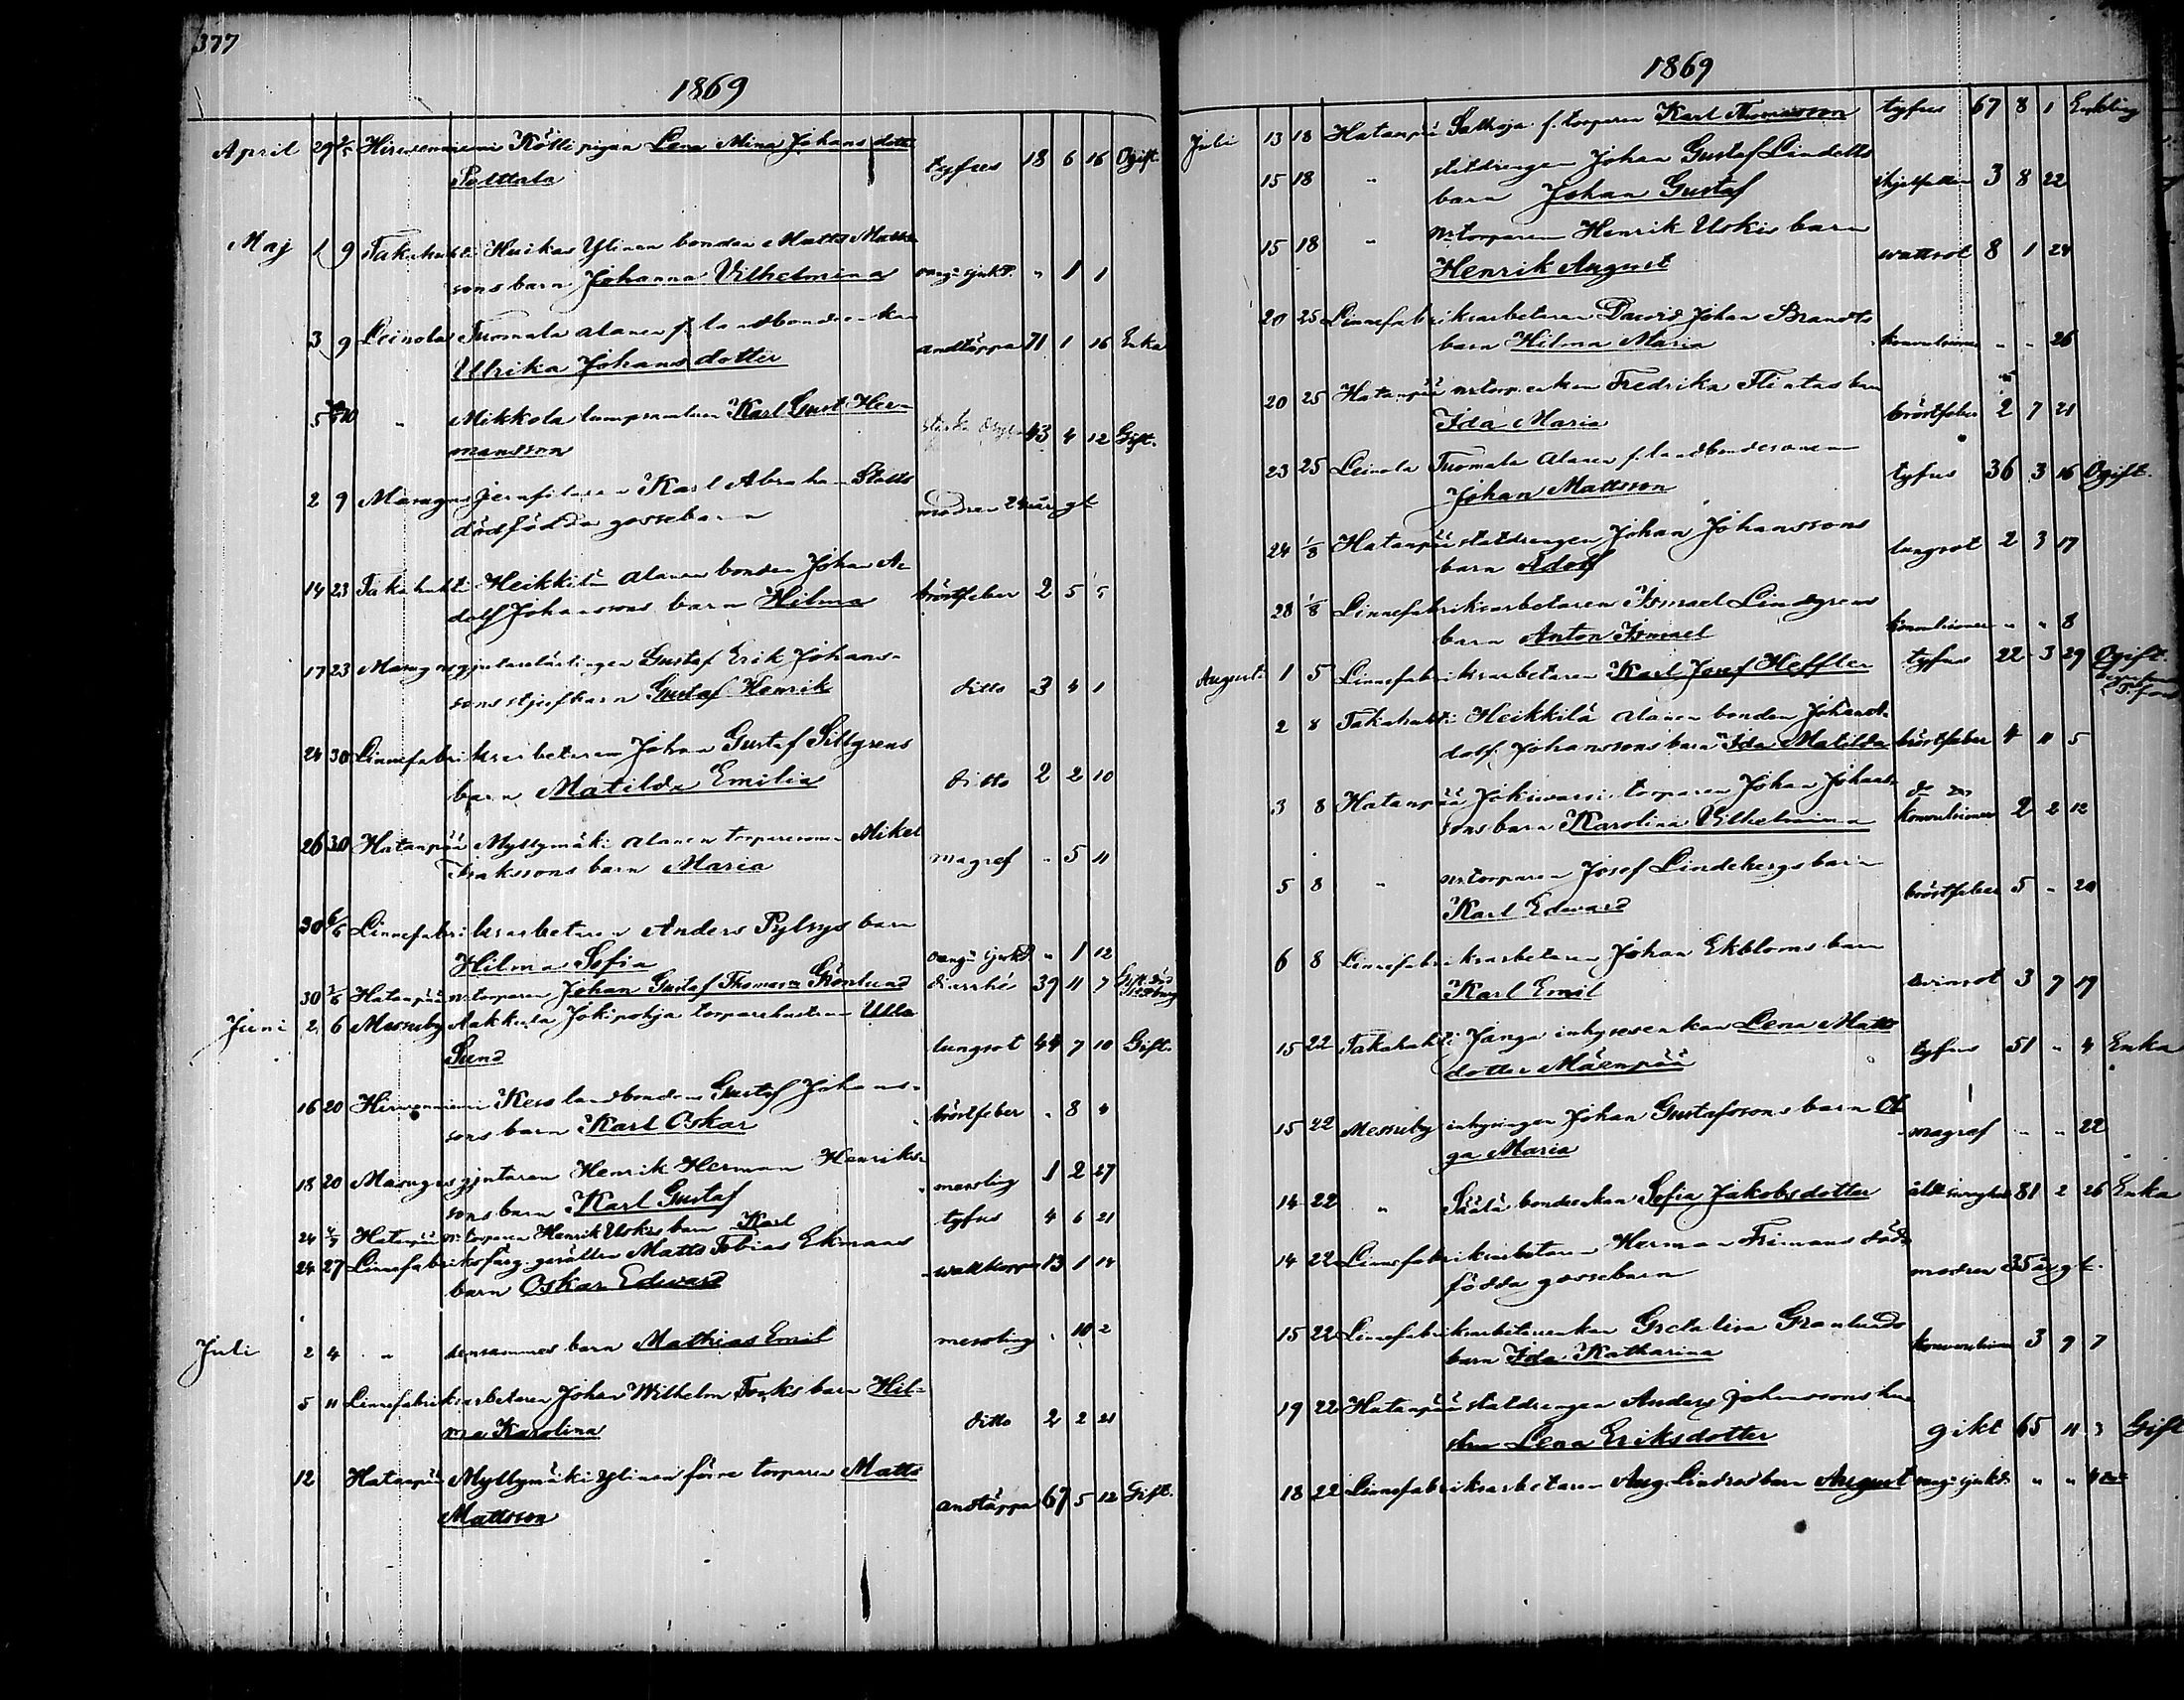 377
1869
April 29 2/5 Hirvenniemi Kölli pigan Lena Mina Johansdotter
Palttala tyfus 18 6 16 Ogift
Maj 1 9 Takahuhti Huikas Ylinen bonden Matts Matts-
sons barn Johanna Vilhelmina " 1 1
3 9 Leinola Tuomala alanen f. landbondeenkan
Ulrika Johansdotter andtäppa 71 1 16 Enka
5 " Mikkola lumpsamlaren Karl Gust. Her-
mansson 43 4 12 Gift.
2 9 Masugns jernfilaren Karl Abraham
dödfödda gossebarn modren 24 år gl
14 23 Takahuhti Heikkilä alanen bonden Johan A-
dolf Johanssons barn Hilma bröstfeber 2 5 5
17 23 Masugnsgjutarelärlingen Gustaf Erik Johans-
sons styfbarn Gustaf Henrik ditto 3 4 1
24 30 Linnefabriksarbetaren Johan Gustaf Sillgrens
barn Matilda Emilia ditto 2 2 10
26 30 Hatanpää Myllymäki alanen torparesonen Mikel
Isakssons barn Maria magref " 5 11
30 6/6 Linnefabriksarbetaren Anders Pylsys barn
Hilma Sofia " 1 12
30 Hatanpää m:torparen Johan Gustaf Thomasson Grönlund diarrhé 39 11 7 Gift
Juni 2 6 Messuby Aakkula Jokipohja torparehustrun Ulla
Sund lungsot 44 7 10 Gift.
16 20 Hirvenniemi Keso landbonden Gustaf Johans-
sons barn Karl Oskar bröstfeber " 8 4
18 20 Masugnsgjutaren Henrik Herman Henriks-
sons barn Karl Gustaf messling 1 2 27
24 Hatanpää m:torparen Henrik Uskis barn Karl tyfus 4 6 21
24 27 Linnefabriksfärg.gesällen Matts Tobias Ekmans
barn Oskar Edward wattkoppor 13 1 14
Juli 2 4 " densammes barn Mathias Emil messling " 10 2
5 11 Linnefabriksarbetaren Johan Wilhelm barn Hil-
ma Karolina ditto 2 2 21
12 Hatanpää Myllymäki Ylinen förre torparen Matts
Mattsson andtäppa 67 5 12 Gift.
1869
Juli 13 18 Hatanpää Salhoja f. torparen Karl Thomasson tyfus 67 8 1 Enkling
15 18 " statdrengen Johan Gustaf Lindells
barn Johan Gustaf 3 8 22
15 18 " m:torparen Henrik Uskis barn
Henrik August wattsot 8 1 24
20 25 Linnefabriksarbetaren David Johan Brandts
barn Hilma Maria konvulsioner " " 26
20 25 Hatanpää m:torp.enkan Fredrika Flintas barn
Ida Maria bröstfeber 2 7 21
23 25 Leinola Tuomala alanen f. landbondesonen
Johan Mattsson tyfus 36 3 16 Ogift.
24 1/8 Hatanpää statdrengen Johan Johanssons
barn Adolf lungsot 2 3 17
28 1/8 Linnefabriksarbetaren Ismael Lindgrens
barn Anton Ismael konvulsioner " " 8
Augusti 1 5 Linnefabriksarbetaren Karl Josef Heffler tyfus 22 3 29 Ogift.
2 8 Takahuhti Heikkilä alanen bonden Johan A-
dolf Johanssons barn Ida Matilda bröstfeber 4 11 5
3 8 Hatanpää Jokiwarsi torparen Johan Johans-
sons barn Karolina Vilhelmina konvulsioner 2 2 12
5 8 " m:torparen Josef Lindebergs barn
Karl Edward bröstfeber 5 " 20
6 8 Linnefabriksarbetaren Johan Ekbloms barn
Karl Emil tvinsot 3 7 19
15 22 Takahuhti Janga inhysesenkan Lena Matts
dotter Mäenpää tyfus 51 " 4 Enka
15 22 Messuby inhysingen Johan Gustafssons barn Ol-
ga Maria magref " " 22
14 22 " Säälä bondeenkan Sofia Jakobsdotter 81 2 26 Enka
14 22 Linnefabriksarbetaren Herman Frimans död-
födda gossebarn modren 35 år gl.
15 22 Linnefabriksarbetareenkan Greta Lisa Granlunds
barn Ida Katharina konvulsioner 3 9 7
19 22 Hatanpää statdrengen Anders Johanssons hu-
stru Lena Eriksdotter gikt 65 11 3 Gift
18 22 Linnefabriksarbetaren Aug. Lindroos barn August " " 4